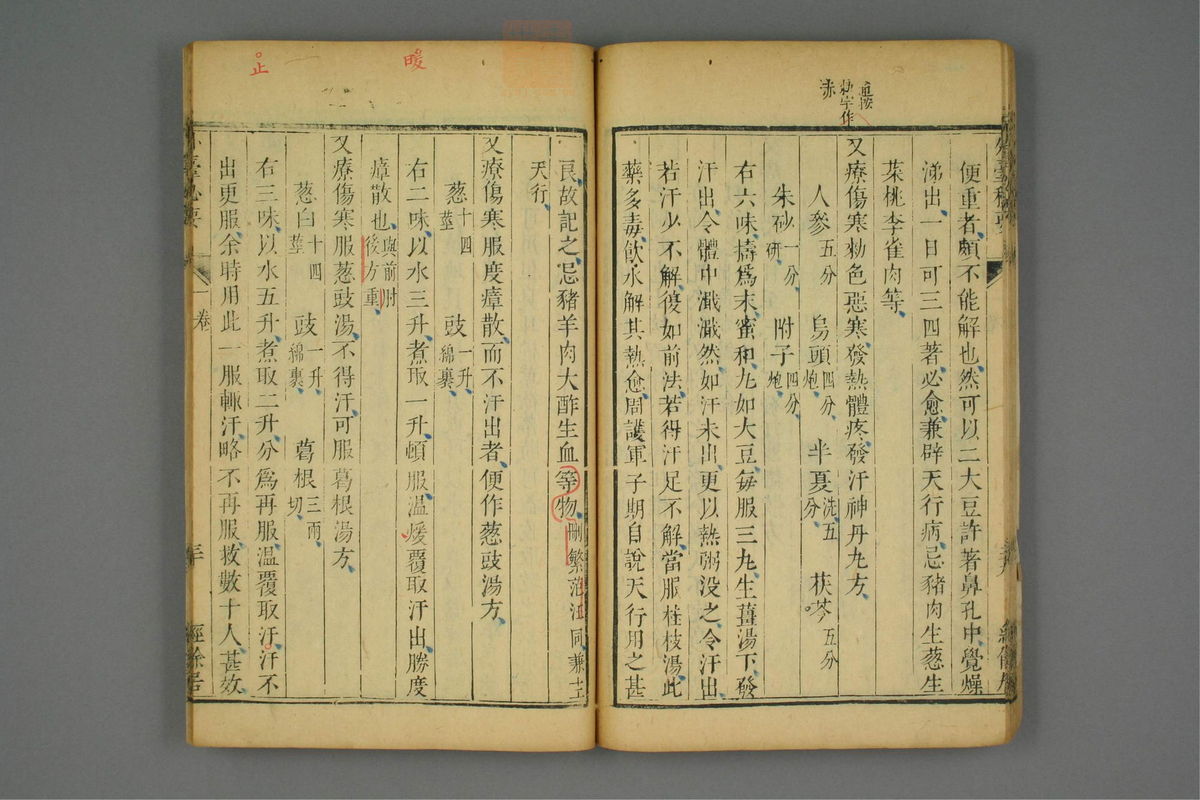 重按
勑字作
赤
便重者、頗不能解也、然可以二大豆許著鼻孔中、覺燥
涕出、一日可三四著、必愈、兼辟天行病、忌豬肉生葱生
菜桃李雀肉等、
又療傷寒勑色惡寒發熱體疼、發汗神丹丸方、
人參五分 烏頭四分炮 半夏洗五分 茯苓五分
朱砂一分研 附子四分炮
右六味、擣為末、蜜和、丸如大豆、每服三丸、生薑湯下、發
汗出、令體中濈濈然、如汗未出、更以熱粥投之、令汗出、
若汗少不解、復如前法、若得汗足不解、當服桂枝湯、此
藥多毒、飲水解其熱愈、周護軍子期自說天行用之甚
良、故記之、忌豬羊肉大酢生血等物、刪繁范汪同兼主
天行、
又療傷寒服度瘴散而不汗出者、便作葱豉湯方、
葱十四莖 豉一升綿裹
右二味、以水三升、煮取一升、頓服、溫煖覆取汗出、勝度
瘴散也、與前肘後方重
又療傷寒服葱豉湯、不得汗、可服葛根湯方、
葱白十四莖 豉一升綿裹 葛根三兩切
右三味、以水五升、煮取二升、分為再服、溫覆取汗、汗不
出更服、余時用此一服輙汗、略不再服、救數十人、甚效、
暖
止
一卷
經餘居